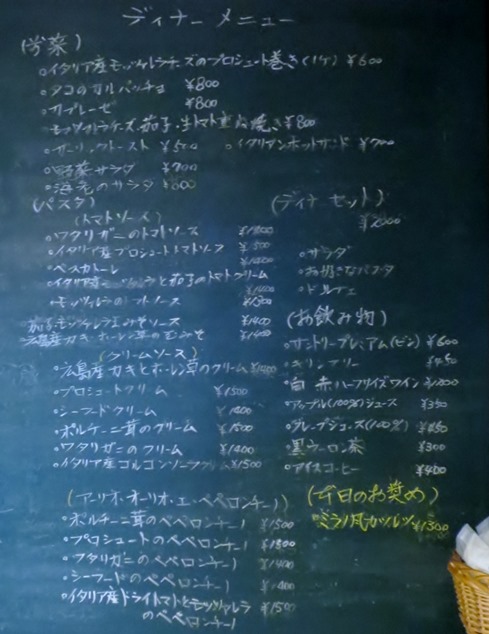 ディナーメニュー
(前菜)
・イタリア産モッツァレラチーズのプロシュート巻き(1ケ) ¥600
・タコのカルパッチョ ¥800
・カプレーゼ ¥800
・モッツァレラチーズ・茄子・生トマト重ね焼き ¥800
・ガーリックトースト ¥500 ・イタリアンホットサンド ¥700
・野菜サラダ ¥700
・海老のサラダ ¥800
(パスタ)
(トマトソース)
・ワタリガニのトマトソース ¥1400
・イタリア産プロシュートトマトソース ¥1500
・ペスカトーレ ¥1400
・イタリア産モッツァレラと茄子のトマトクリーム ¥1400
・モッツァレラのトマトソース ¥1300
茄子モッツァレラ玉みそソース ¥1400
広島産カキとホーレン草の玉みそ ¥1400
(クリームソース)
・広島産カキとホーレン草のクリーム ¥1400
・プロシュートクリーム ¥1500
・シーフードクリーム ¥1400
・ポルチーニ茸のクリーム ¥1500
・ワタリガニのクリーム ¥1400
・イタリア産ゴルゴンゾーラクリーム ¥1500
(アーリオ・オーリオ・エ・ペペロンチーノ)
・ポルチーニ茸のペペロンチーノ ¥1500
・プロシュートのペペロンチーノ ¥1500
・ワタリガニのペペロンチーノ ¥1400
・シーフードのペペロンチーノ ¥1400
・イタリア産ドライトマトとモッツァレラ ¥1500
のペペロンチーノ
(ディナーセット)
¥2000
・サラダ
・お好きなパスタ
・ドルチェ
(お飲み物)
・サントリープレミアム(ビン) ¥600
・キリンフリー ¥450
・白 赤 ハーフサイズワイン ¥1200
・アップル(100%)ジュース ¥350
・グレープジュース(100%) ¥450
・黒ウーロン茶 ¥300
・アイスコーヒー ¥400
(本日のお奨め)
・ミラノ風カツレツ ¥1300